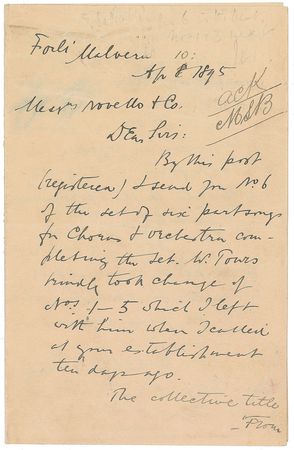 Forli Malvern
Ap 8 1895
ack
MSB
Messrs Novello & Co.
Dear Sirs:
By this post
(registered) I send you No. 6
of the set of six partsongs
for Chorus & orchestra com-
pleting the set. Mr. Tours
kindly took charge of
Nos. 1–5 which I left
with him when I called
at your establishment
ten days ago.
The collective title
"From